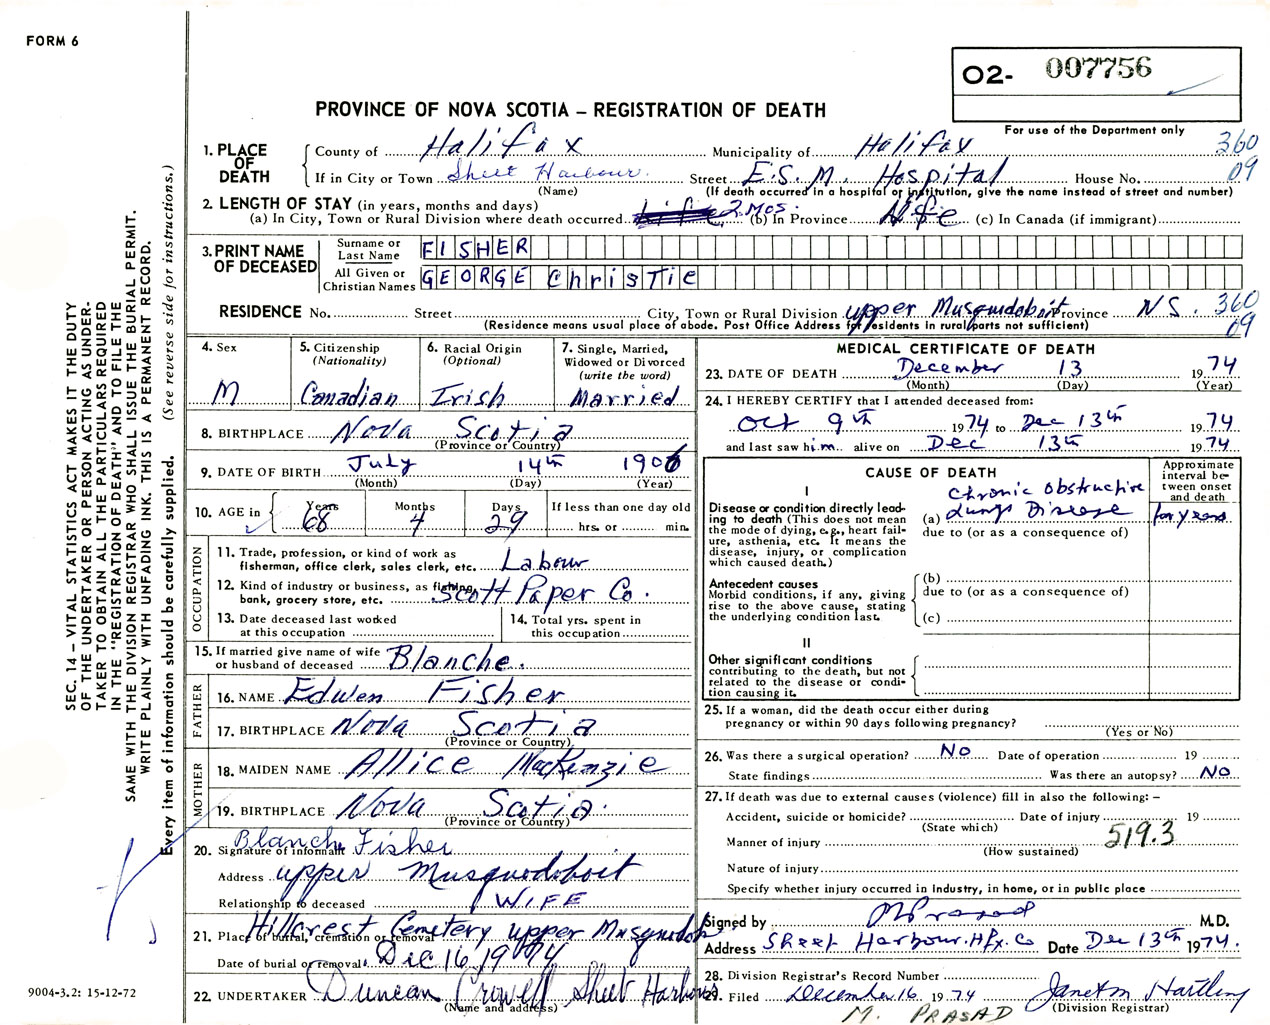 FORM 6
O2- 007756
PROVINCE OF NOVA SCOTIA – REGISTRATION OF DEATH
For use of the Department only
1. PLACE OF DEATH
County of Halifax Municipality of Halifax 360
If in City or Town Sheet Harbour. Street E.S.M. Hospital House No. 09
(Name) (If death occurred in a hospital or institution, give the name instead of street and number)
2. LENGTH OF STAY (in years, months and days)
(a) In City, Town or Rural Division where death occurred life 2 Mos. (b) In Province life (c) In Canada (if immigrant)
3. PRINT NAME OF DECEASED
Surname or Last Name FISHER
All Given or Christian Names GEORGE ChrisTie
RESIDENCE No. Street City, Town or Rural Division upper Musquodoboit Province NS. 360
(Residence means usual place of abode. Post Office Address for residents in rural parts not sufficient) 09
4. Sex M
5. Citizenship (Nationality) Canadian
6. Racial Origin (Optional) Irish
7. Single, Married, Widowed or Divorced (write the word) Married
8. BIRTHPLACE Nova Scotia
(Province or Country)
9. DATE OF BIRTH July 14th 1906
(Month) (Day) (Year)
10. AGE in Years 68 Months 4 Days 29 If less than one day old hrs. or min.
OCCUPATION
11. Trade, profession, or kind of work as fisherman, office clerk, sales clerk, etc. Labour
12. Kind of industry or business, as fishing, bank, grocery store, etc. Scott Paper Co.
13. Date deceased last worked at this occupation
14. Total yrs. spent in this occupation
15. If married give name of wife or husband of deceased Blanche.
FATHER
16. NAME Edwen Fisher
17. BIRTHPLACE Nova Scotia
(Province or Country)
MOTHER
18. MAIDEN NAME Allice MacKenzie
19. BIRTHPLACE Nova Scotia.
(Province or Country)
20. Signature of informant Blanch Fisher
Address upper Musquodoboit
Relationship to deceased WIFE
21. Place of burial, cremation or removal Hillcrest Cemetery upper Musquodob
Date of burial or removal Dec 16, 1974
22. UNDERTAKER Duncan Crowell Sheet Harbour
(Name and address)
MEDICAL CERTIFICATE OF DEATH
23. DATE OF DEATH December 13 1974
(Month) (Day) (Year)
24. I HEREBY CERTIFY that I attended deceased from:
Oct 9th 1974 to Dec 13th 1974
and last saw him alive on Dec 13th 1974
CAUSE OF DEATH
Approximate interval between onset and death
I
Disease or condition directly leading to death (This does not mean the mode of dying, e.g., heart failure, asthenia, etc. It means the disease, injury, or complication which caused death.)
(a) Chronic Obstructive Lungs Disease for years
due to (or as a consequence of)
Antecedent causes
Morbid conditions, if any, giving rise to the above cause, stating the underlying condition last.
(b)
due to (or as a consequence of)
(c)
II
Other significant conditions
contributing to the death, but not related to the disease or condition causing it.
25. If a woman, did the death occur either during pregnancy or within 90 days following pregnancy?
(Yes or No)
26. Was there a surgical operation? NO Date of operation 19
State findings Was there an autopsy? NO
27. If death was due to external causes (violence) fill in also the following: –
Accident, suicide or homicide? Date of injury 19
(State which)
Manner of injury 519.3
(How sustained)
Nature of injury
Specify whether injury occurred in industry, in home, or in public place
Signed by M Prasad M.D.
Address Sheet Harbour. Hfx. Co Date Dec 13th 1974.
28. Division Registrar's Record Number
29. Filed December 16 1974 Janet M Hartling
(Division Registrar)
M. PRASAD
SEC. 14 – VITAL STATISTICS ACT MAKES IT THE DUTY
OF THE UNDERTAKER OR PERSON ACTING AS UNDER-
TAKER TO OBTAIN ALL THE PARTICULARS REQUIRED
IN THE "REGISTRATION OF DEATH" AND TO FILE THE
SAME WITH THE DIVISION REGISTRAR WHO SHALL ISSUE THE BURIAL PERMIT.
WRITE PLAINLY WITH UNFADING INK. THIS IS A PERMANENT RECORD.
Every item of information should be carefully supplied. (See reverse side for instructions.)
9004-3.2: 15-12-72